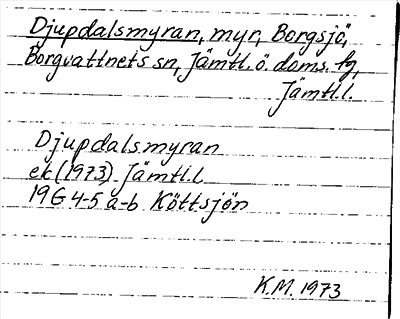 Djupdalsmyran, myr, Borgsjö,
Borgvattnets sn, Jämtl. ö. doms. fg,
Jämtl.l.
Djupdalsmyran
ek (1973) Jämtl.l
19G 4-5 a-b Köttsjön
K.M. 1973